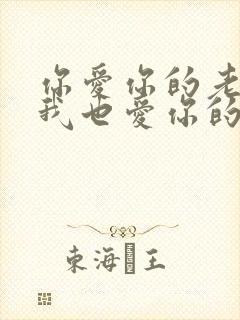 你愛你的老
我也愛你的
東海王